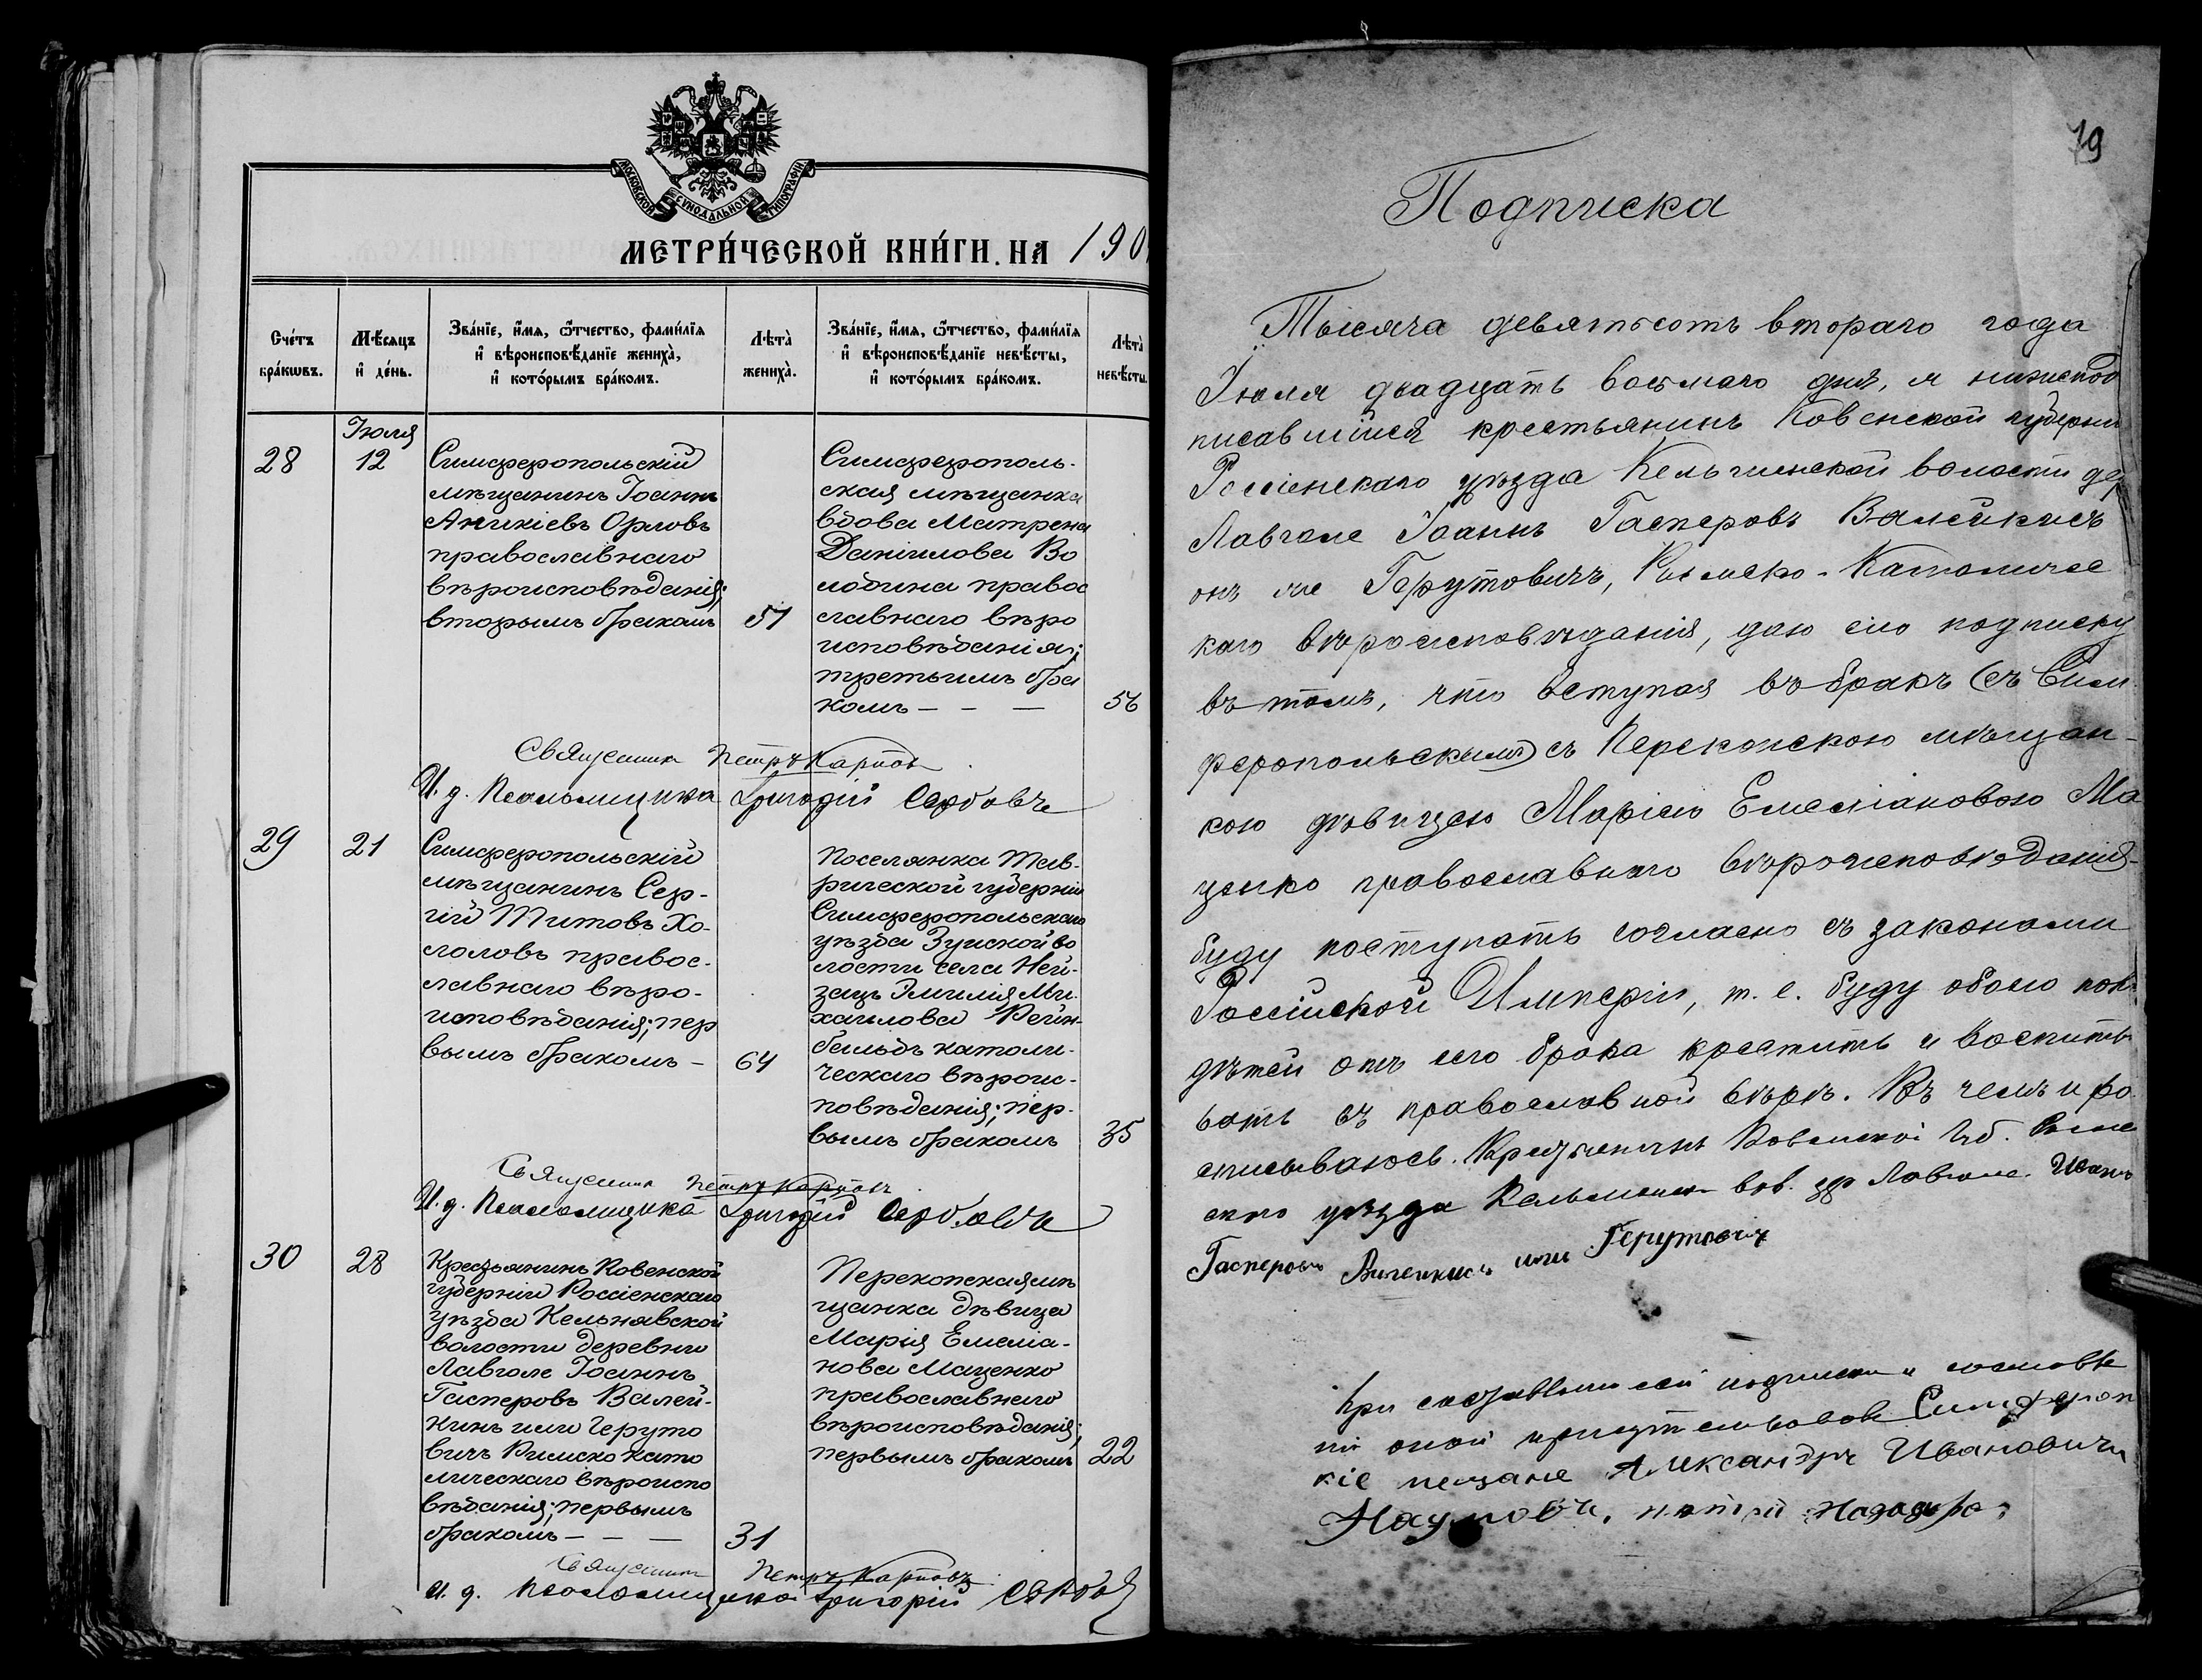 МОСКОВСКОЙ СѴНОДАЛЬНОЙ ТИПОГРАФІИ
МЕТРИ́ЧЕСКОЙ КНИ́ГИ НА 190
Сче́тъ бра́кωвъ.
Мѣ́сяцъ и҆ де́нь.
Зва́нїе, и҆́мя, ѻ҆́тчество, фами́лїя и҆ вѣроисповѣ́данїе жениха̀, и҆ кото́рымъ бра́комъ.
Лѣ́та жениха̀.
Зва́нїе, и҆́мя, ѻ҆́тчество, фами́лїя и҆ вѣроисповѣ́данїе невѣ́сты, и҆ кото́рымъ бра́комъ.
Лѣ́та невѣ́сты.
Іюля
28
12
Симферопольскій
мѣщанинъ Іоаннъ
Аникіевъ Орловъ
православнаго
вѣроисповѣданія;
вторымъ бракомъ
51
Симферополь-
ская мѣщанка
вдова Матрена
Даніилова Во
лодина правос
лавнаго вѣро
исповѣданія;
третьимъ бра
комъ — — —
56
Священникъ Петръ Карповъ
И. д. Псаломщика Григорій Сербовъ
29
21
Симферопольскій
мѣщанинъ Сер-
гій Титовъ Хо-
лоловъ правос-
лавнаго вѣро-
исповѣданія; пер
вымъ бракомъ —
64
Поселянка Тав-
рической губерніи
Симферопольскаго
уѣзда Зуйской во
лости села Ней-
зацъ Эмилія Ми-
хаилова Рейн-
бальдъ католи-
ческаго вѣроис-
повѣданія; пер-
вымъ бракомъ
35
Священникъ Петръ Карповъ
И. д. Псаломщика Григорій Сербовъ
30
28
Крестьянинъ Ковенской
губерніи Россіенскаго
уѣзда Кельнявской
волости деревни
Лавголе Іоаннъ
Гасперовъ Валей-
кинъ или Геруто
вичъ Римско като
лическаго вѣроиспо
вѣданія; первымъ
бракомъ — — —
31
Перекопская мѣ
щанка дѣвица
Марія Емеліа-
нова Маценко
православнаго
вѣроисповѣданія;
первымъ бракомъ
22
Священникъ Петръ Карповъ
И. д. Псаломщика Григорій Сербовъ
79
Подписка
Тысяча девятьсотъ втораго года
Іюля двадцать восьмаго дня, я нижепод
писавшійся крестьянинъ Ковенской губерніи
Россіенскаго уѣзда Кельчинской волости дер
Лавголе Іоаннъ Гасперовъ Валейкисъ
онъ же Герутовичъ, Римско-Католичес
каго вѣроисповѣданія, даю сію подписку
въ томъ, что вступая въ бракъ (съ Сим
феропольскимъ) съ Перекопскою мѣщан-
кою дѣвицею Маріею Емеліановою Ма
ценко православнаго вѣроисповѣданія-
буду поступать согласно съ законами
Россійской Имперіи, т. е. буду обоего пола
дѣтей отъ сего брака крестить и воспиты
вать въ православной вѣрѣ. Въ чемъ и ра
списываюсь. Крестьянинъ Ковенской Губ. Россіе
скаго уѣзда вол. дер Лавголе Иванъ
Гасперовъ или Герутовичъ
При сей подписки и составле
ніи оной Симфероп
кіе мещане Александръ Ивановичъ
Наумовъ,